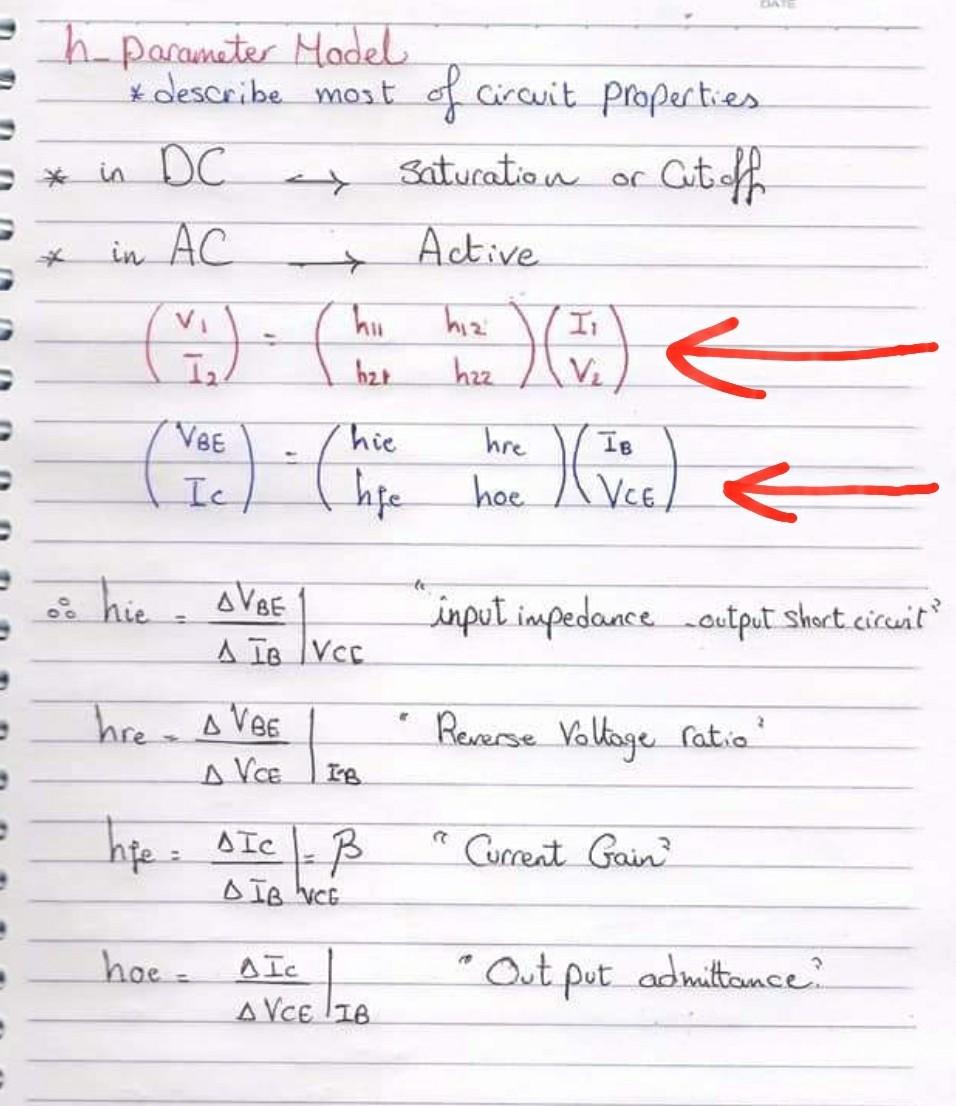 DATE
h-parameter Model
* describe most of circuit properties
* in DC → saturation or Cutoff
* in AC → Active
(V1 I2) = (h11 h12 h21 h22) (I1 V2)
(VBE Ic) = (hie hre hfe hoe) (IB VCE)
∴ hie = ΔVBE / ΔIB | VCE "input impedance - output short circuit"
hre = ΔVBE / ΔVCE | IB "Reverse Voltage ratio"
hfe = ΔIc / ΔIB | VCE = β "Current Gain"
hoe = ΔIc / ΔVCE | IB "Output admittance"